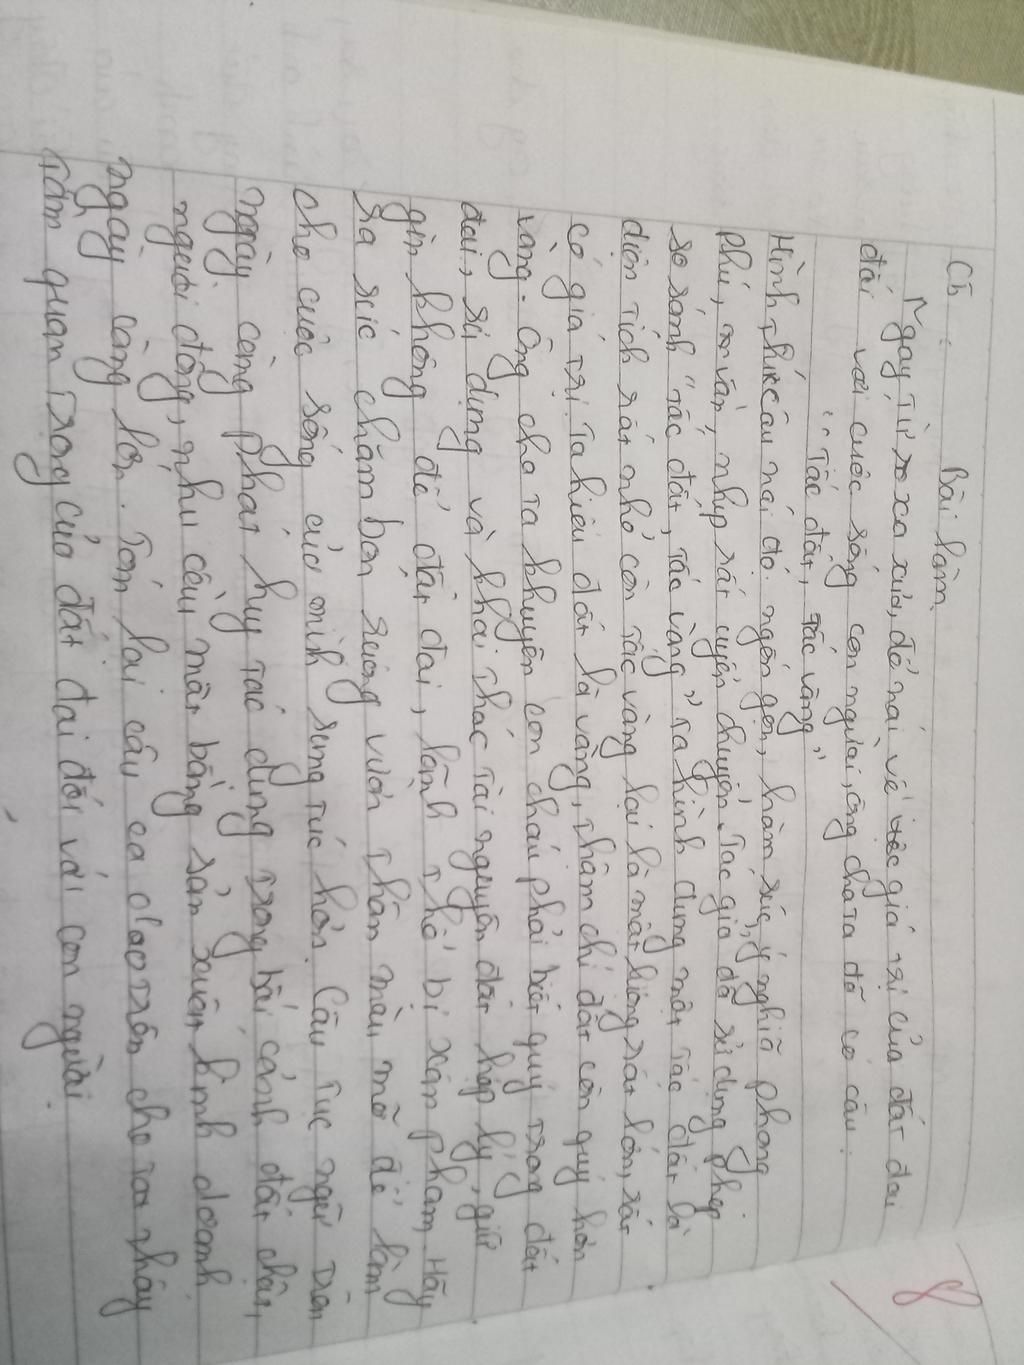 Bài làm
Ch :
Ngay từ xa xưa, để nói về giá trị của đất đai
đối với cuộc sống con người, ông cha ta đã có câu :
"Tấc đất, tấc vàng"
Hình thức câu nói đó ngắn gọn, hàm súc, ý nghĩa phong
phú, có vần, nhịp rất uyển chuyển. Tác giả đã sử dụng phép
so sánh "tấc đất, tấc vàng" ta hình dung một tấc đất là
diện tích rất nhỏ còn tấc vàng lại là một lượng rất lớn, rất
có giá trị. Ta hiểu đất là vàng, thậm chí đất còn quý hơn
vàng. Ông cha ta khuyên con cháu phải biết quý trọng đất
đai, sử dụng và khai thác tài nguyên đất hợp lý, giữ
gìn không để đất đai, lãnh thổ bị xâm phạm. Hãy
ra sức chăm bón ruộng vườn thêm màu mỡ để làm
cho cuộc sống của mình sung túc hơn. Câu tục ngữ trên
ngày càng phát huy tác dụng trong bối cảnh đất chật,
người đông, nhu cầu mặt bằng sản xuất kinh doanh
ngày càng lớn. Tóm lại câu ca dao trên cho ta thấy
tầm quan trọng của đất đai đối với con người.
8